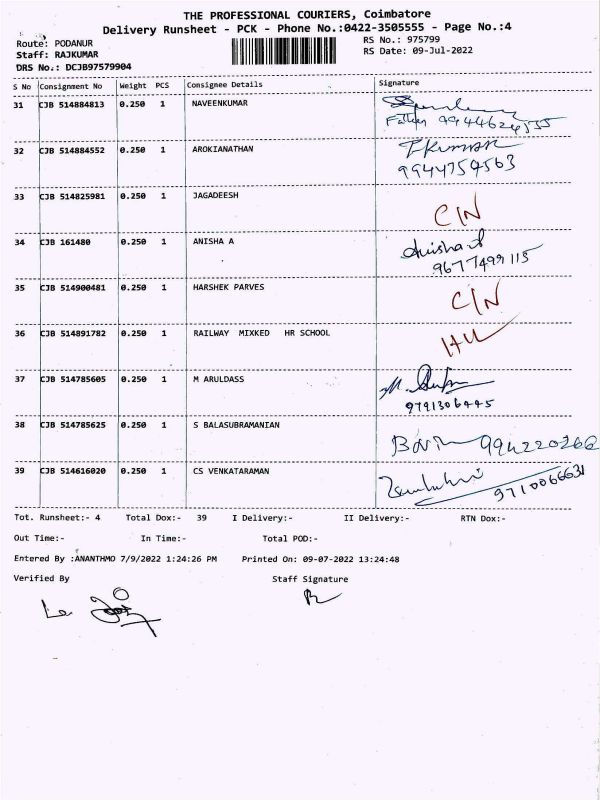 THE PROFESSIONAL COURIERS, Coimbatore
Delivery Runsheet - PCK - Phone No.:0422-3505555 - Page No.:4
Route: PODANUR
RS No.: 975799
Staff: RAJKUMAR
RS Date: 09-Jul-2022
DRS No.: DCJB97579904
S No Consignment No Weight PCS Consignee Details Signature
31 CJB 514884813 0.250 1 NAVEENKUMAR
Father 9944624535
32 CJB 514884552 0.250 1 AROKIANATHAN
9944754563
33 CJB 514825981 0.250 1 JAGADEESH C/N
34 CJB 161480 0.250 1 ANISHA A Anisha A
9677499115
35 CJB 514900481 0.250 1 HARSHEK PARVES C/N
36 CJB 514891782 0.250 1 RAILWAY MIXKED HR SCHOOL
37 CJB 514785605 0.250 1 M ARULDASS
9791306445
38 CJB 514785625 0.250 1 S BALASUBRAMANIAN 994220266
39 CJB 514616020 0.250 1 CS VENKATARAMAN
9710066631
Tot. Runsheet:- 4 Total Dox:- 39 I Delivery:- II Delivery:- RTN Dox:-
Out Time:- In Time:- Total POD:-
Entered By :ANANTHMO 7/9/2022 1:24:26 PM Printed On: 09-07-2022 13:24:48
Verified By Staff Signature